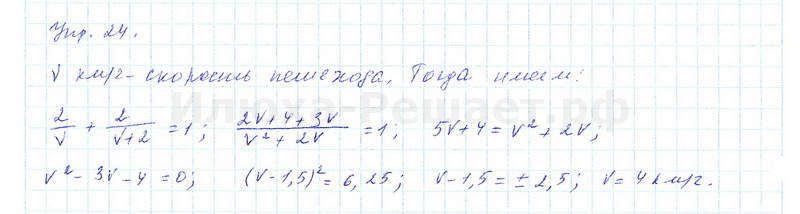 Упр. 24.
V км/ч - скорость пешехода. Тогда имеем:
Илюха-Решает.рф
2/V + 2/(V+2) = 1; (2V+4+3V)/(V²+2V) = 1; 5V+4 = V²+2V;
V²-3V-4=0; (V-1,5)²=6,25; V-1,5=±2,5; V=4 км/ч.